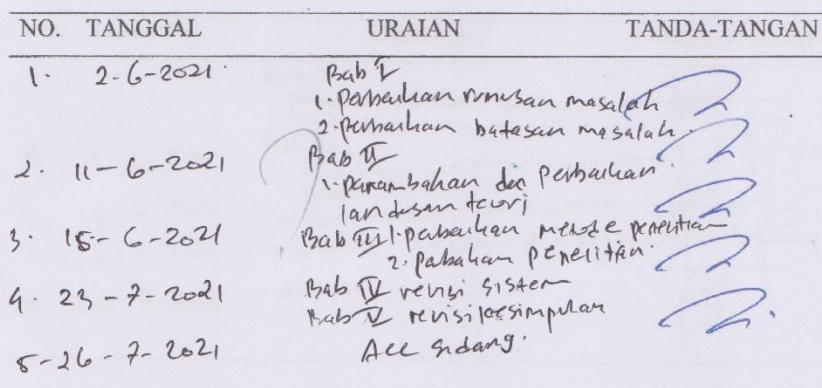 NO. TANGGAL URAIAN TANDA-TANGAN
1. 2-6-2021 Bab I
1. perbaikan rumusan masalah
2. perbaikan batasan masalah.
2. 11-6-2021 Bab II
1. penambahan dan perbaikan
landasan teori
3. 15-6-2021 Bab III 1. perbaikan metode penelitian
2. penelitian.
4. 23-7-2021 Bab IV revisi sistem
Bab V revisi kesimpulan
5-26-7-2021 Acc sidang.